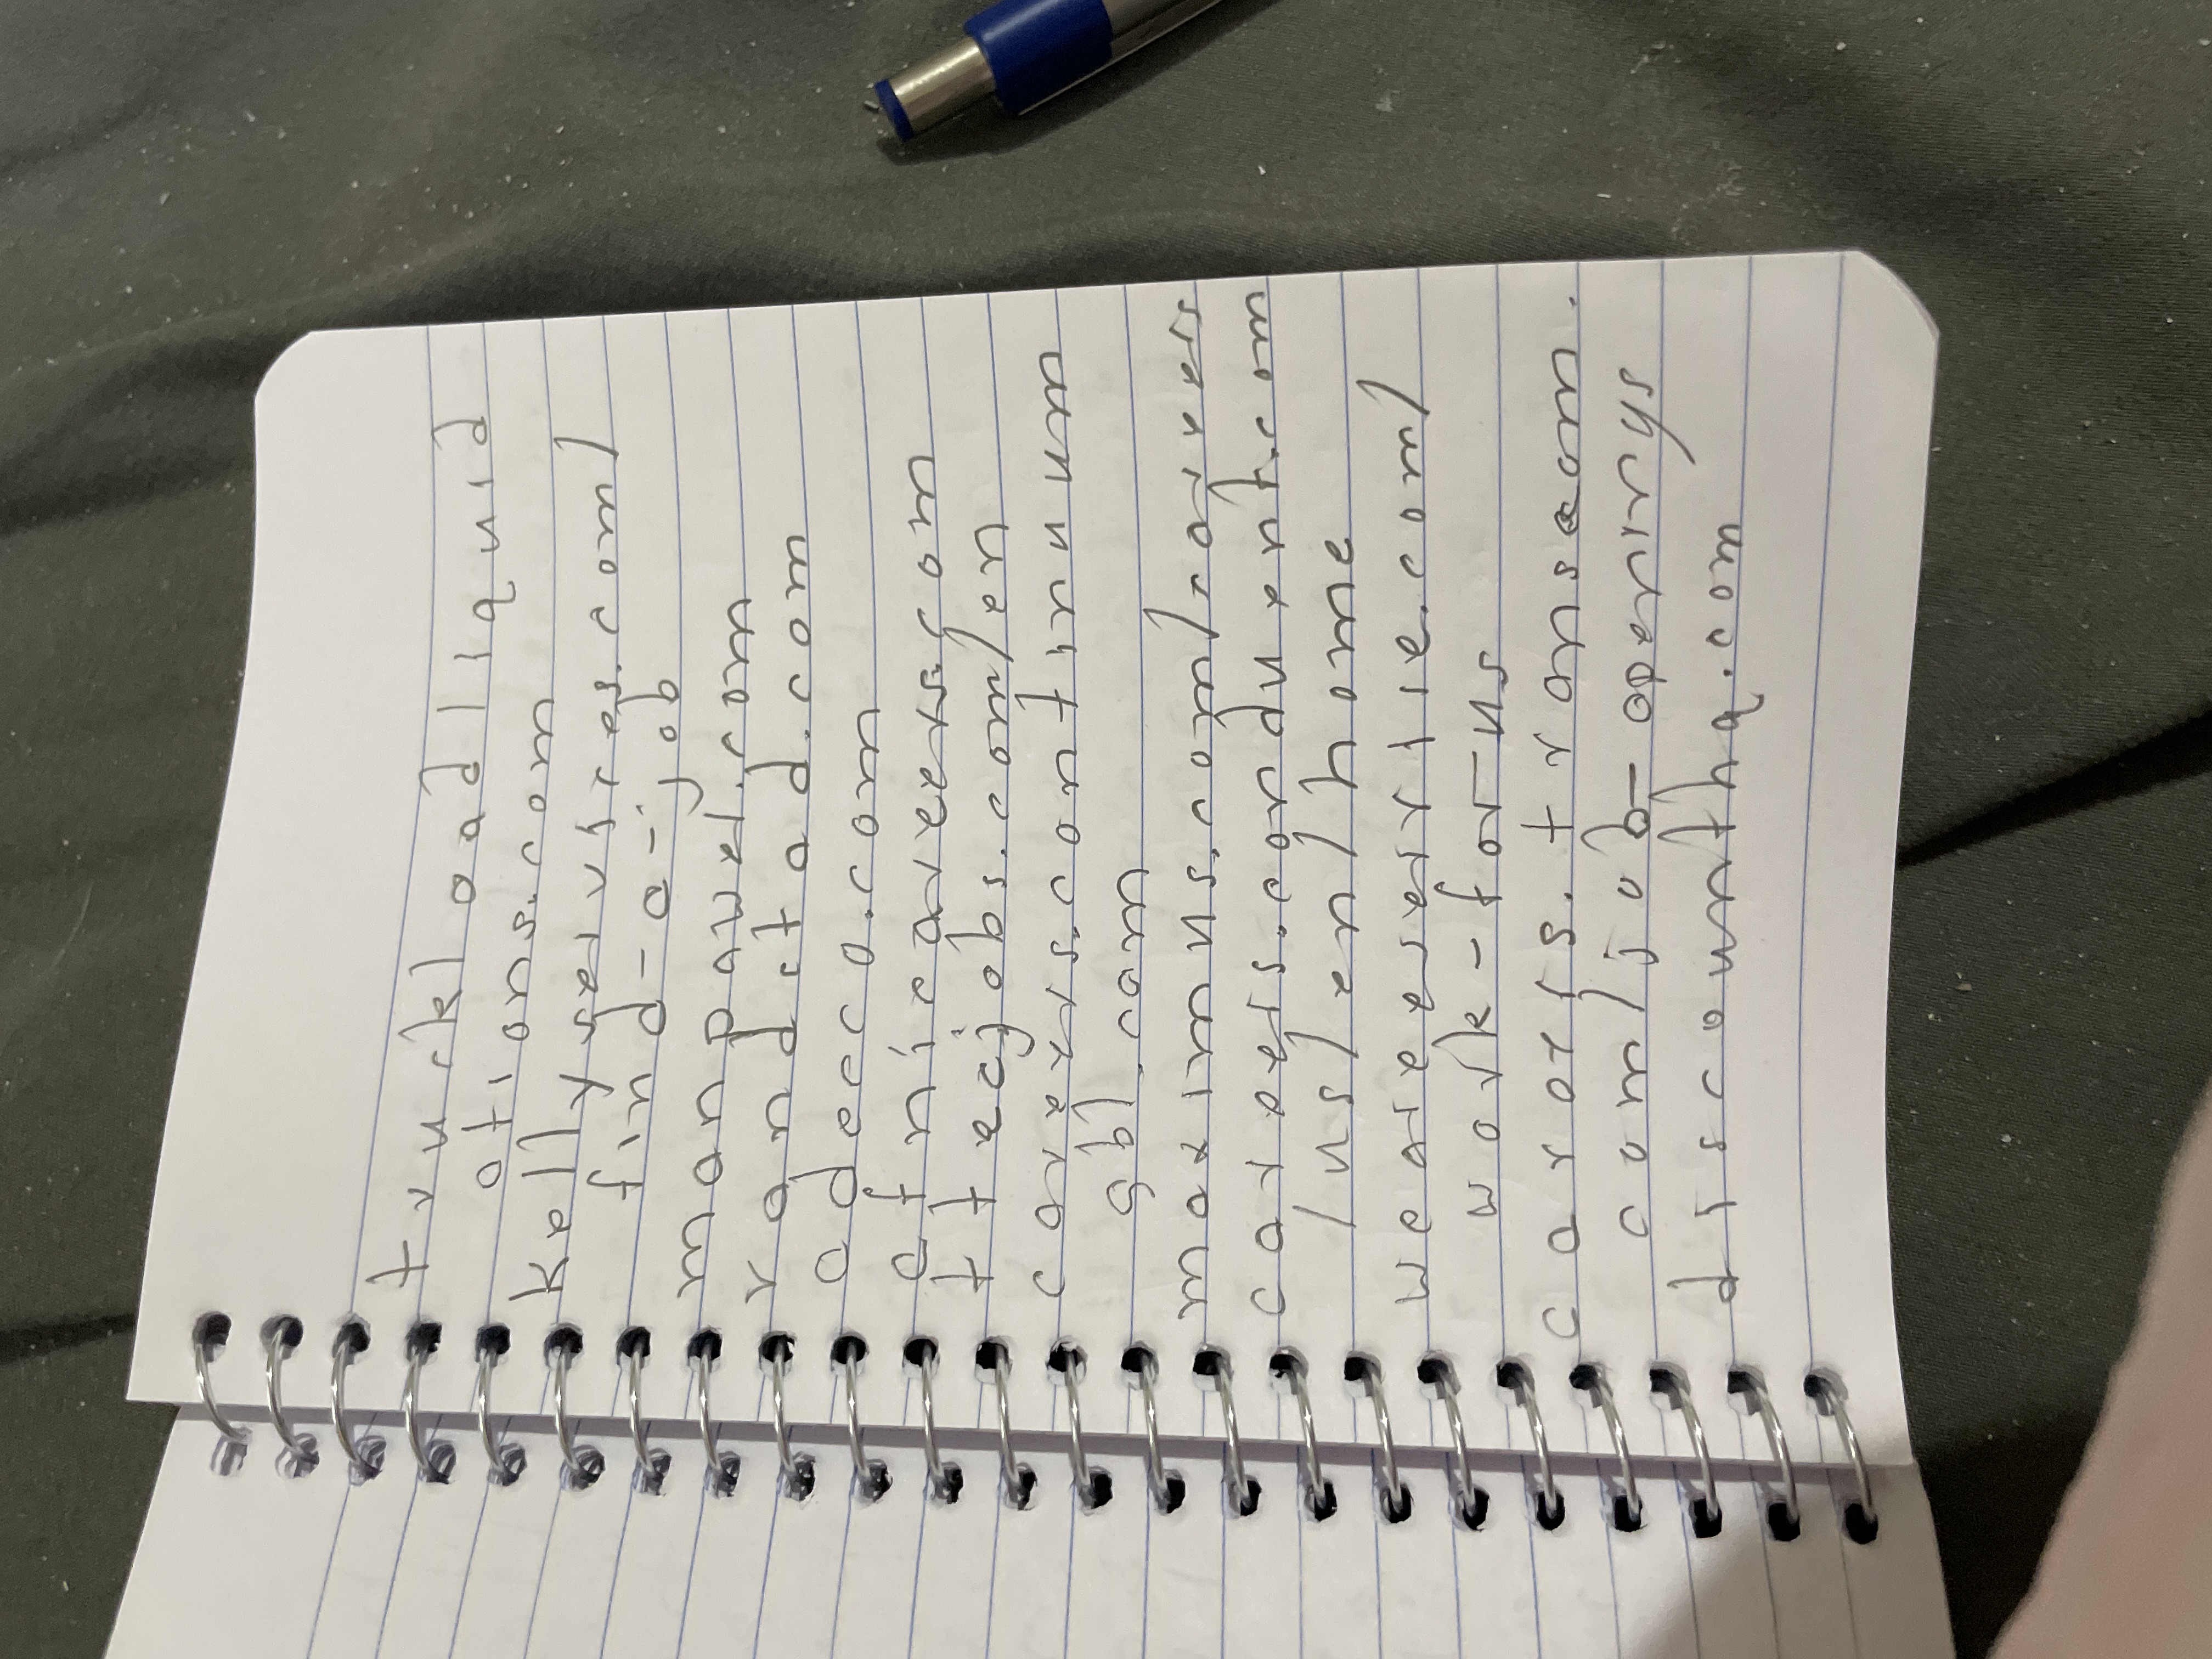 truckloadliquid
ations.com
kellyservices.com/
find-a-job
manpower.com
randstad.com
adecco.com
afnicareers.com
ttecjobs.com/en
careers.concentrix
gbl.com
maximus.com/careers
careers.conduent.com
/us/en/home
wearewraxle.com/
work-for-us
carots.transom.
com/job-openings
discounthq.com